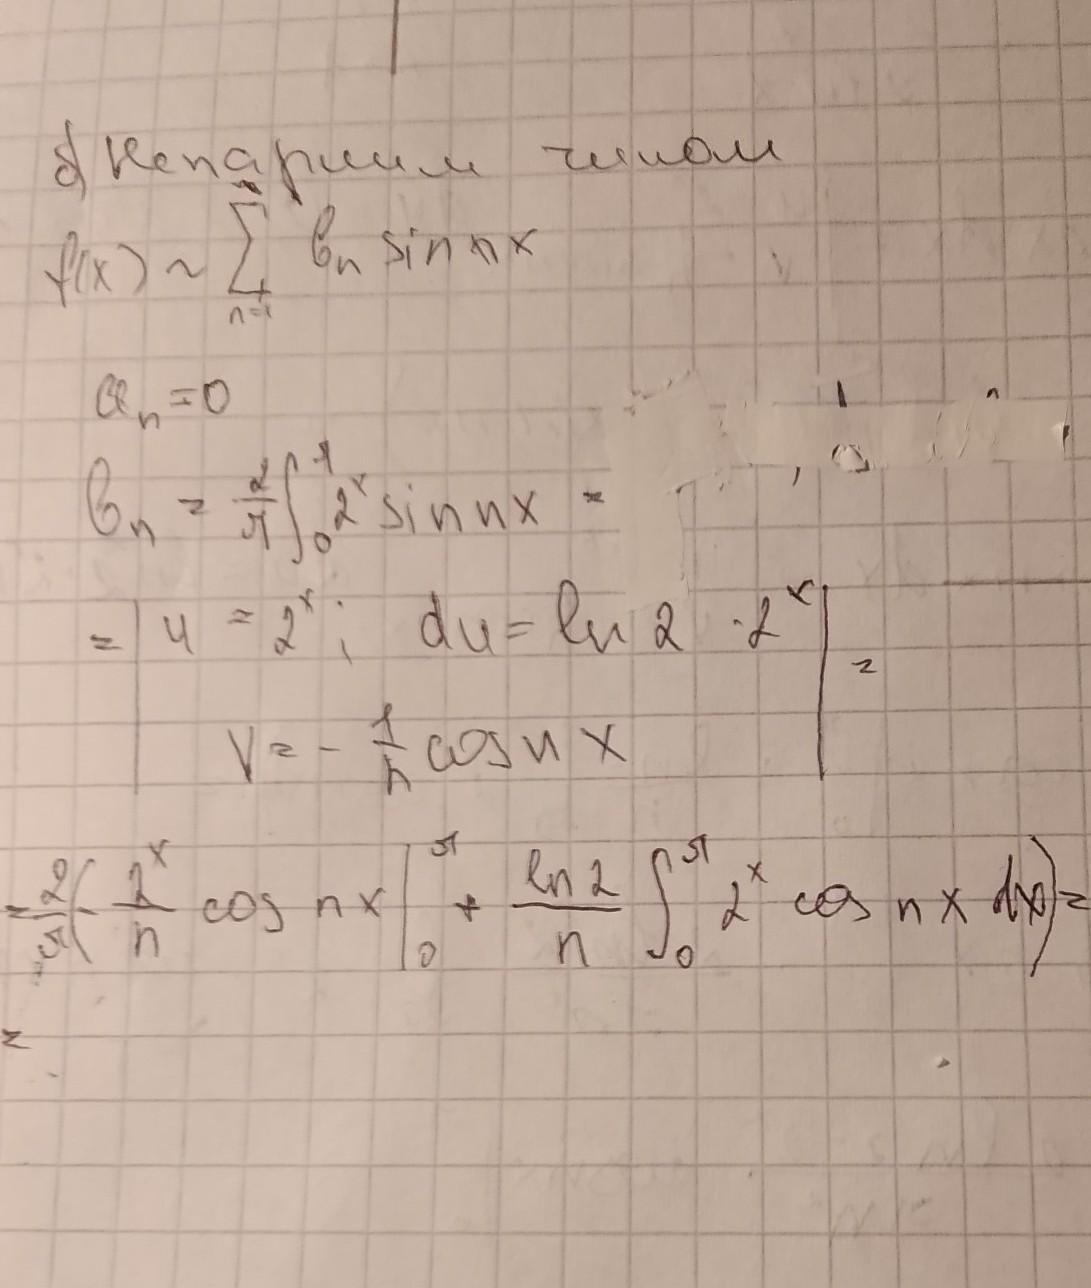 б) непарним чином
f(x) ~ ∑_{n=1}^{∞} bₙ sin nx
aₙ = 0
bₙ = 2/π ∫₀^π 2ˣ sin nx =
= | u = 2ˣ; du = ln 2 · 2ˣ | =
v = - 1/n cos nx
= 2/π (- 2ˣ/n cos nx |₀^π + ln 2/n ∫₀^π 2ˣ cos nx dx) =
=